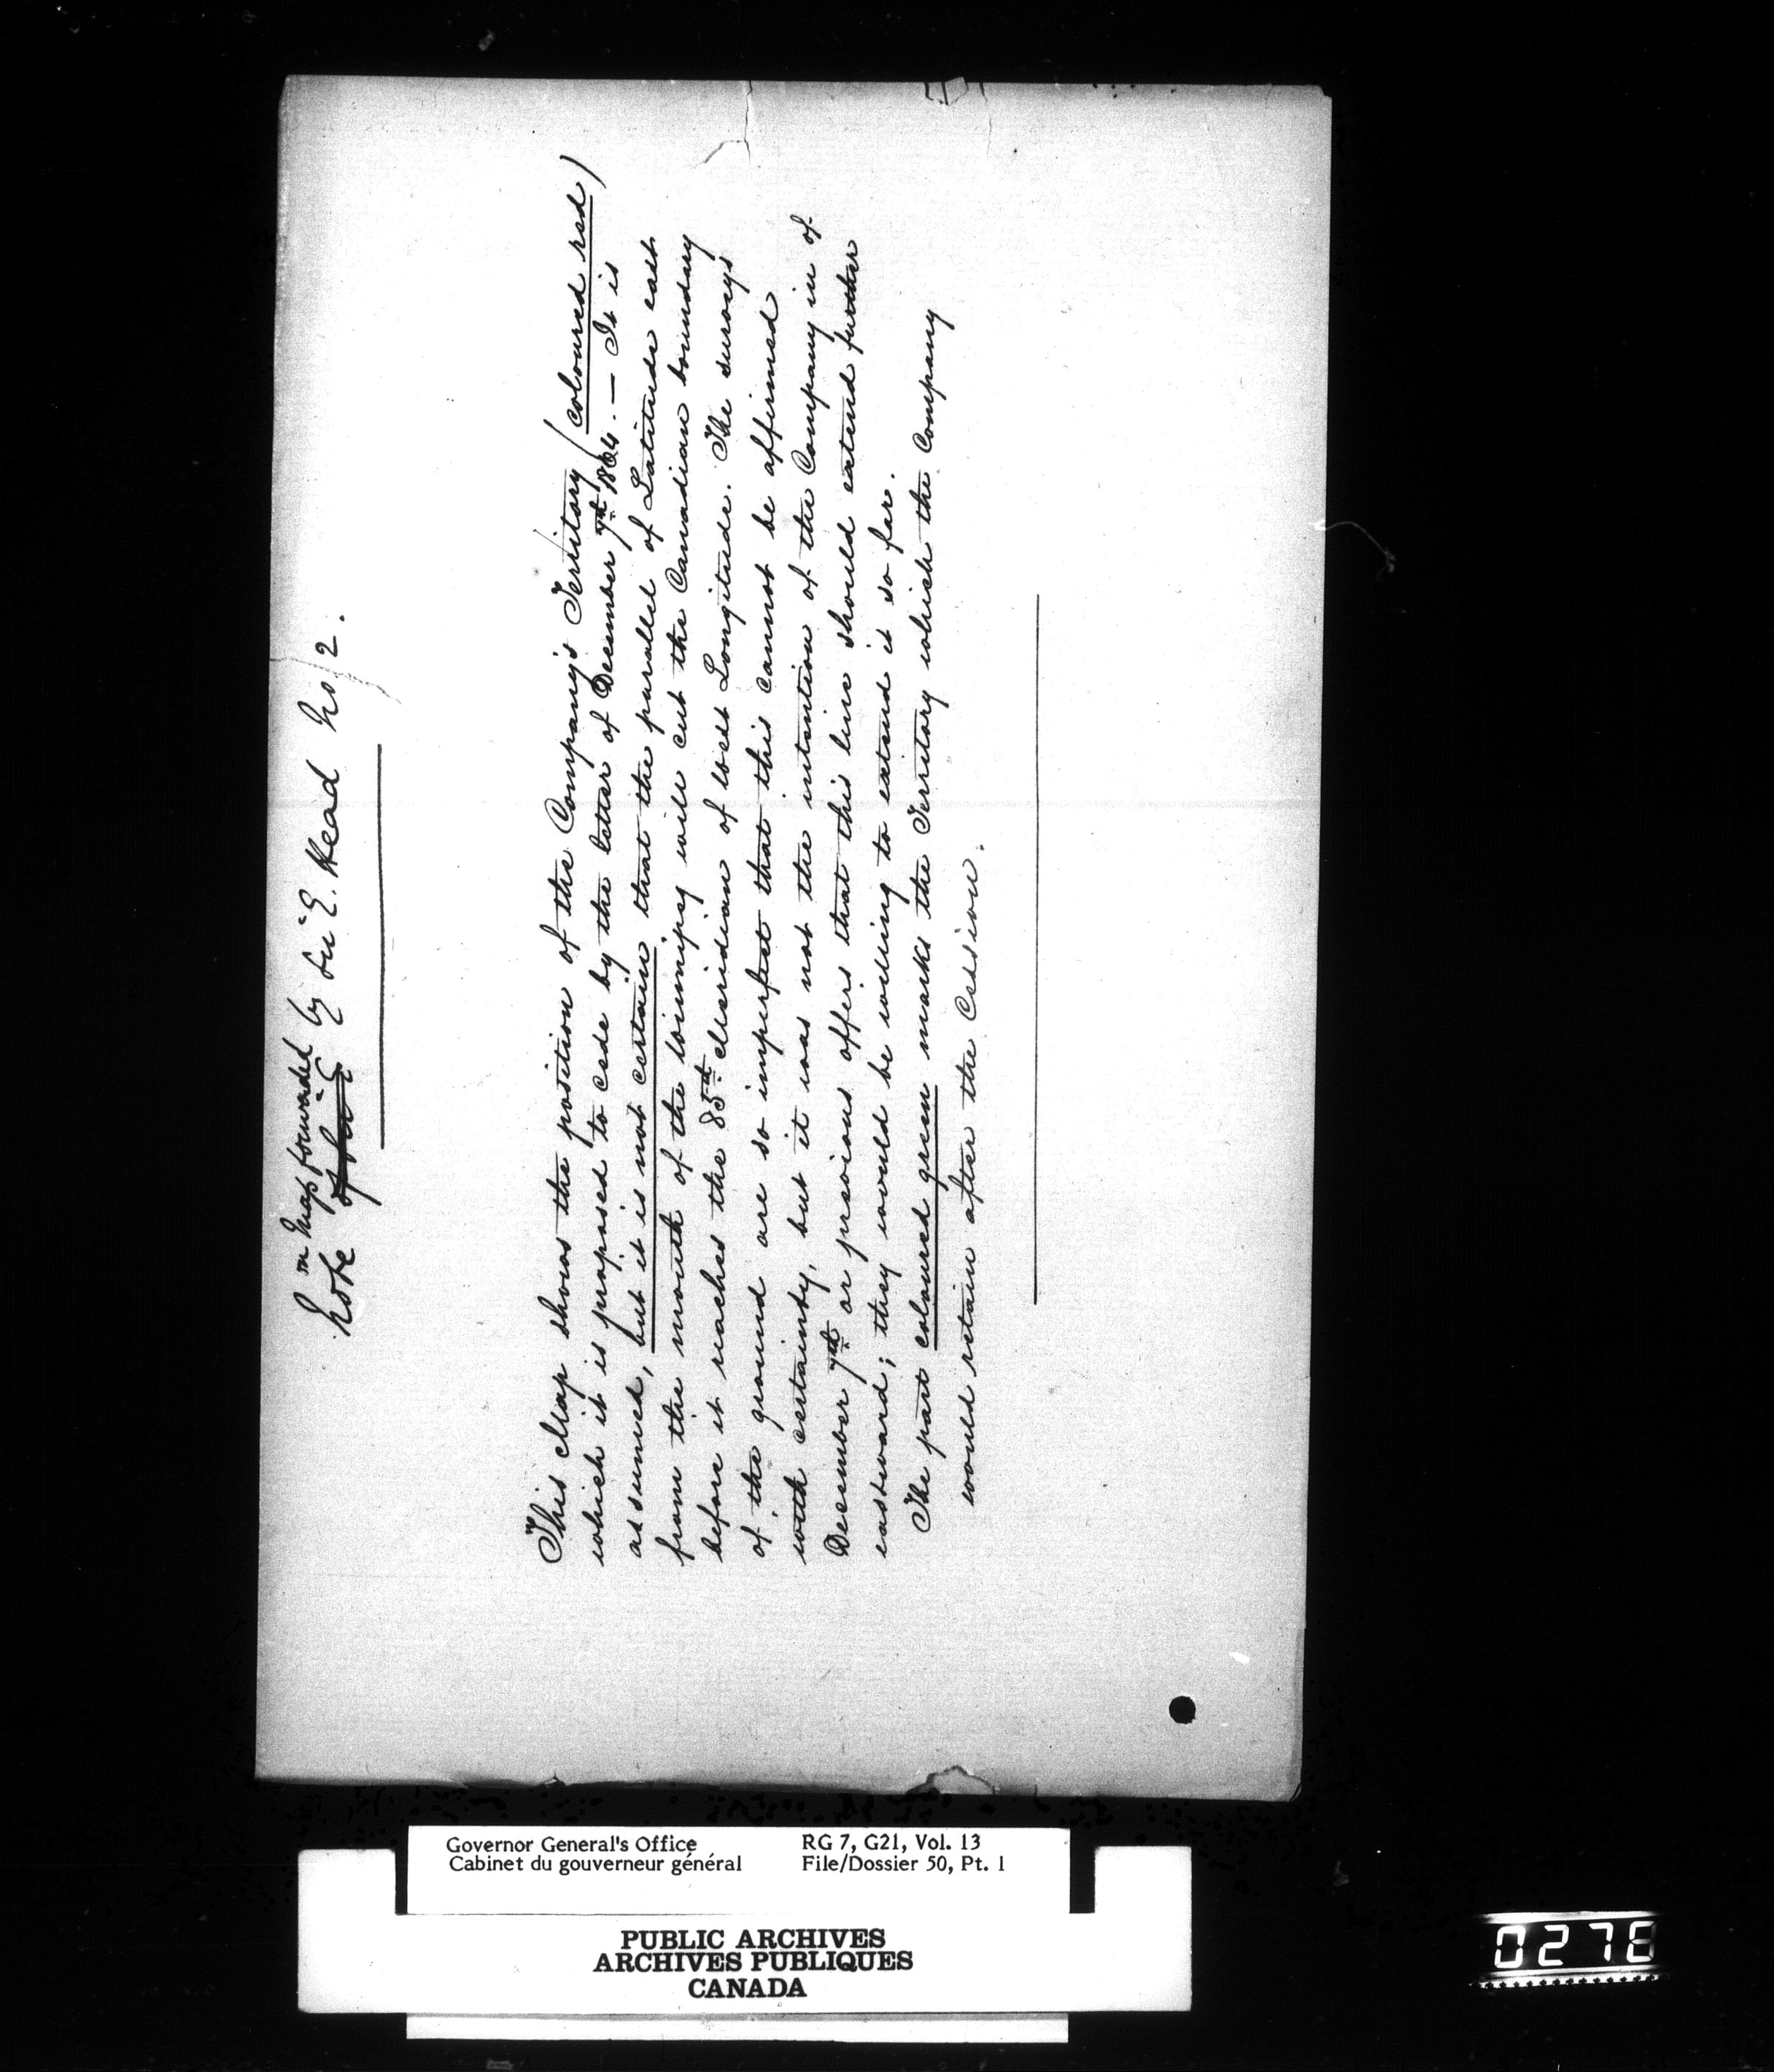 on Map forwarded
Note of Sir E by Sir E. Head No 2.
This Map shows the position of the Company's Territory (coloured red)
which it is proposed to cede by the letter of December 7th 1864. — It is
assumed, but it is not certain that the parallel of Latitude east
from the mouth of the Winnipeg will cut the Canadian boundary
before it reaches the 85th Meridian of West Longitude. The surveys
of the ground are so imperfect that this cannot be affirmed
with certainty, but it was not the intention of the Company in of
December 7th or previous offers that this line should extend further
eastward; they would be willing to extend it so far.
The part coloured green marks the Territory which the Company
would retain after the Cession.
Governor General's Office RG 7, G21, Vol. 13
Cabinet du gouverneur général File/Dossier 50, Pt. 1
PUBLIC ARCHIVES
ARCHIVES PUBLIQUES
CANADA
0278